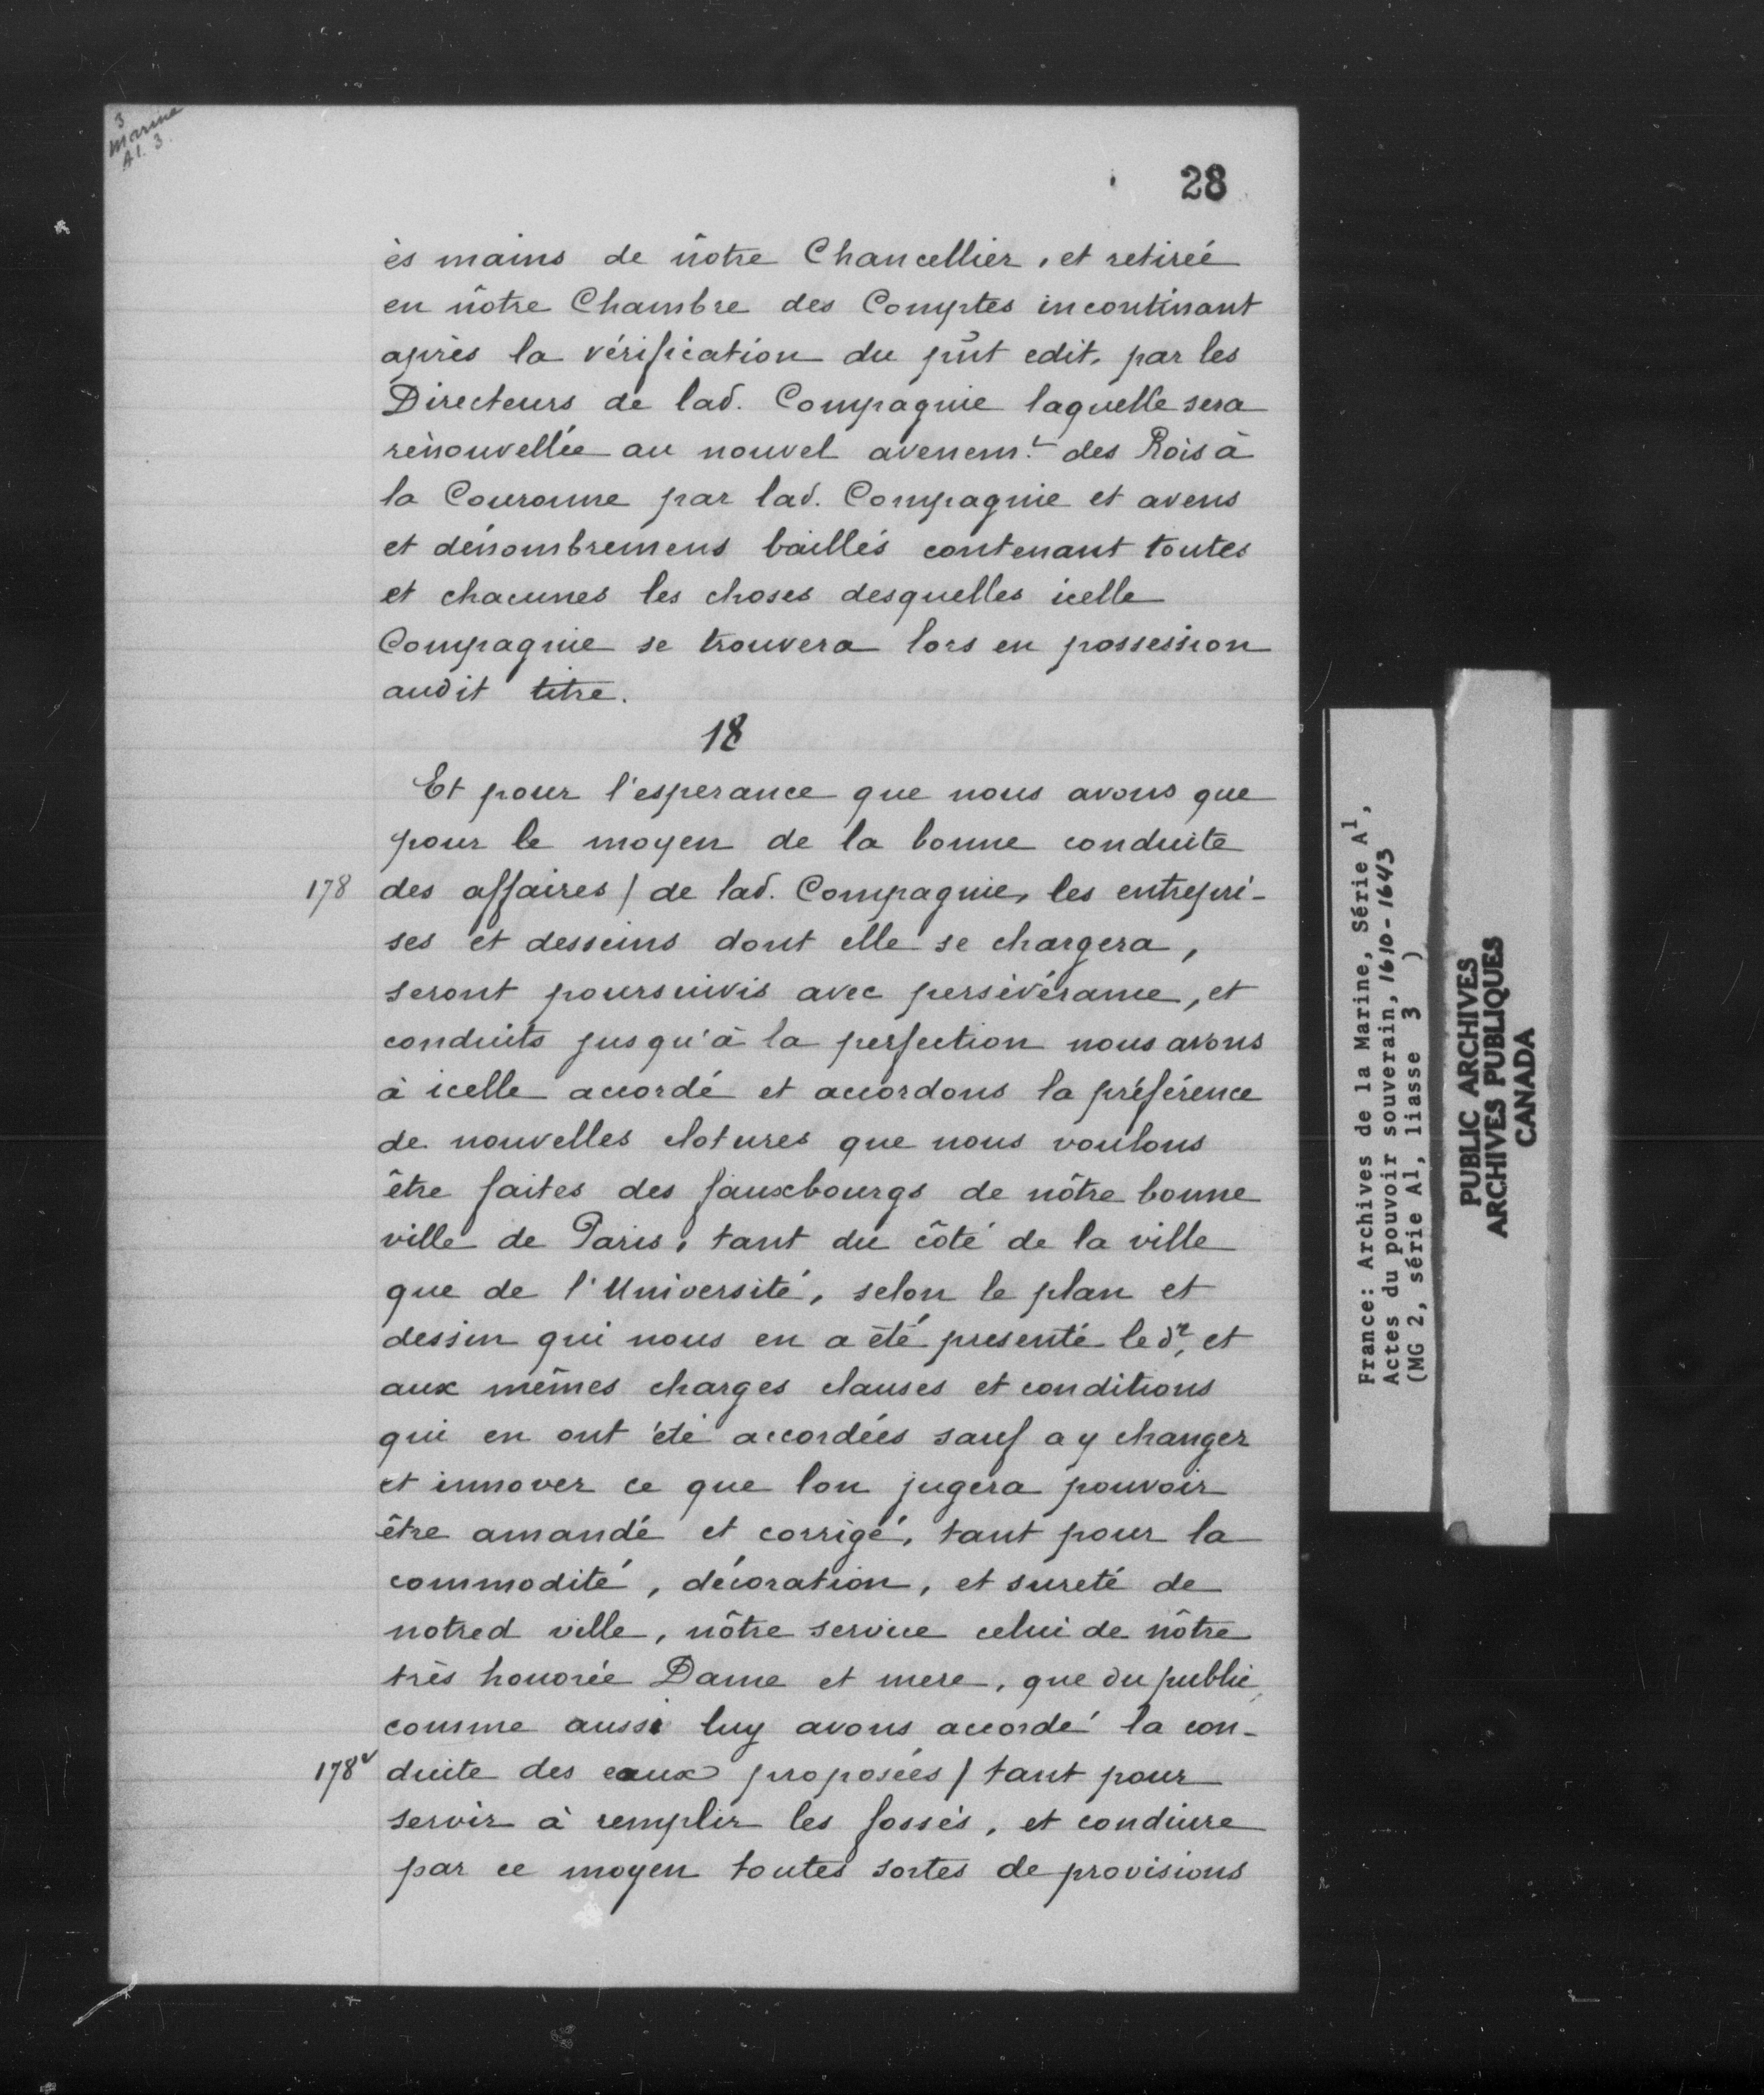 3
Marine
A1. 3.
28
ès mains de nôtre Chancellier, et retirée
en nôtre Chambre des Comptes incontinant
après la vérification du pñt edit, par les
Directeurs de lad. Compagnie laquelle sera
rénouvellée au nouvel avenem.t des Rois à
la Couronne par lad. Compagnie et aveus
et dénombremens baillés contenant toutes
et chacunes les choses desquelles icelle
Compagnie se trouvera lors en possession
audit titre.
18
Et pour l'esperance que nous avons que
pour le moyen de la bonne conduite
178 des affaires / de lad. Compagnie, les entrepri-
ses et desseins dont elle se chargera,
seront poursuivis avec persévérance, et
conduits jusqu'à la perfection nous avons
à icelle accordé et accordons la préférence
de nouvelles clotures que nous voulons
être faites des fauxbourgs de nôtre bonne
ville de Paris, tant du côté de la ville
que de l'Université, selon le plan et
dessin qui nous en a été presenté led., et
aux mêmes charges clauses et conditions
qui en ont été accordées sauf a y changer
et innover ce que lon jugera pouvoir
être amandé et corrigé, tant pour la
commodité, décoration, et sureté de
notred ville, nôtre service celui de nôtre
très honorée Dame et mere, que du public,
comme aussi luy avons accordé la con-
178v duite des eaux proposées / tant pour
servir à remplir les fossés, et conduire
par ce moyen toutes sortes de provisions
France: Archives de la Marine, Série A1,
Actes du pouvoir souverain, 1610-1643
(MG 2, série A1, liasse 3 )
PUBLIC ARCHIVES
ARCHIVES PUBLIQUES
CANADA